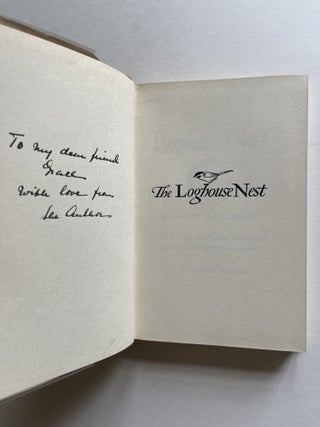 To my dear friend
Grace
With love from
The Author
The Loghouse Nest